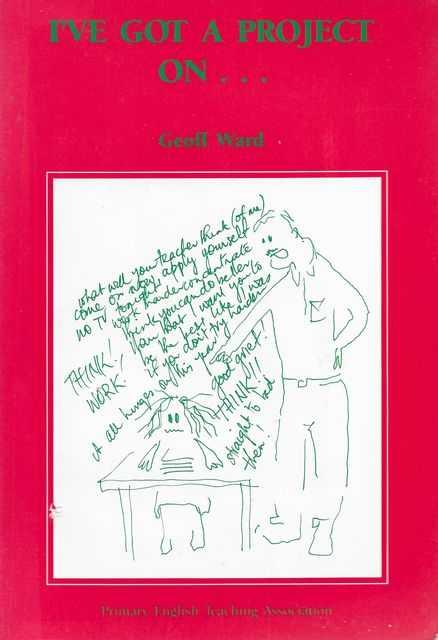 I'VE GOT A PROJECT
ON . . .
Geoff Ward
what will your teacher think (of me)
come on now, apply yourself
no TV tonight, concentrate
work harder
think you can do better
than that I want you to
be the best like I was
if you don't try harder
THINK!
WORK.
it all hinges on this year
good grief!
THINK!!!
straight to bed
then!
Primary English Teaching Association